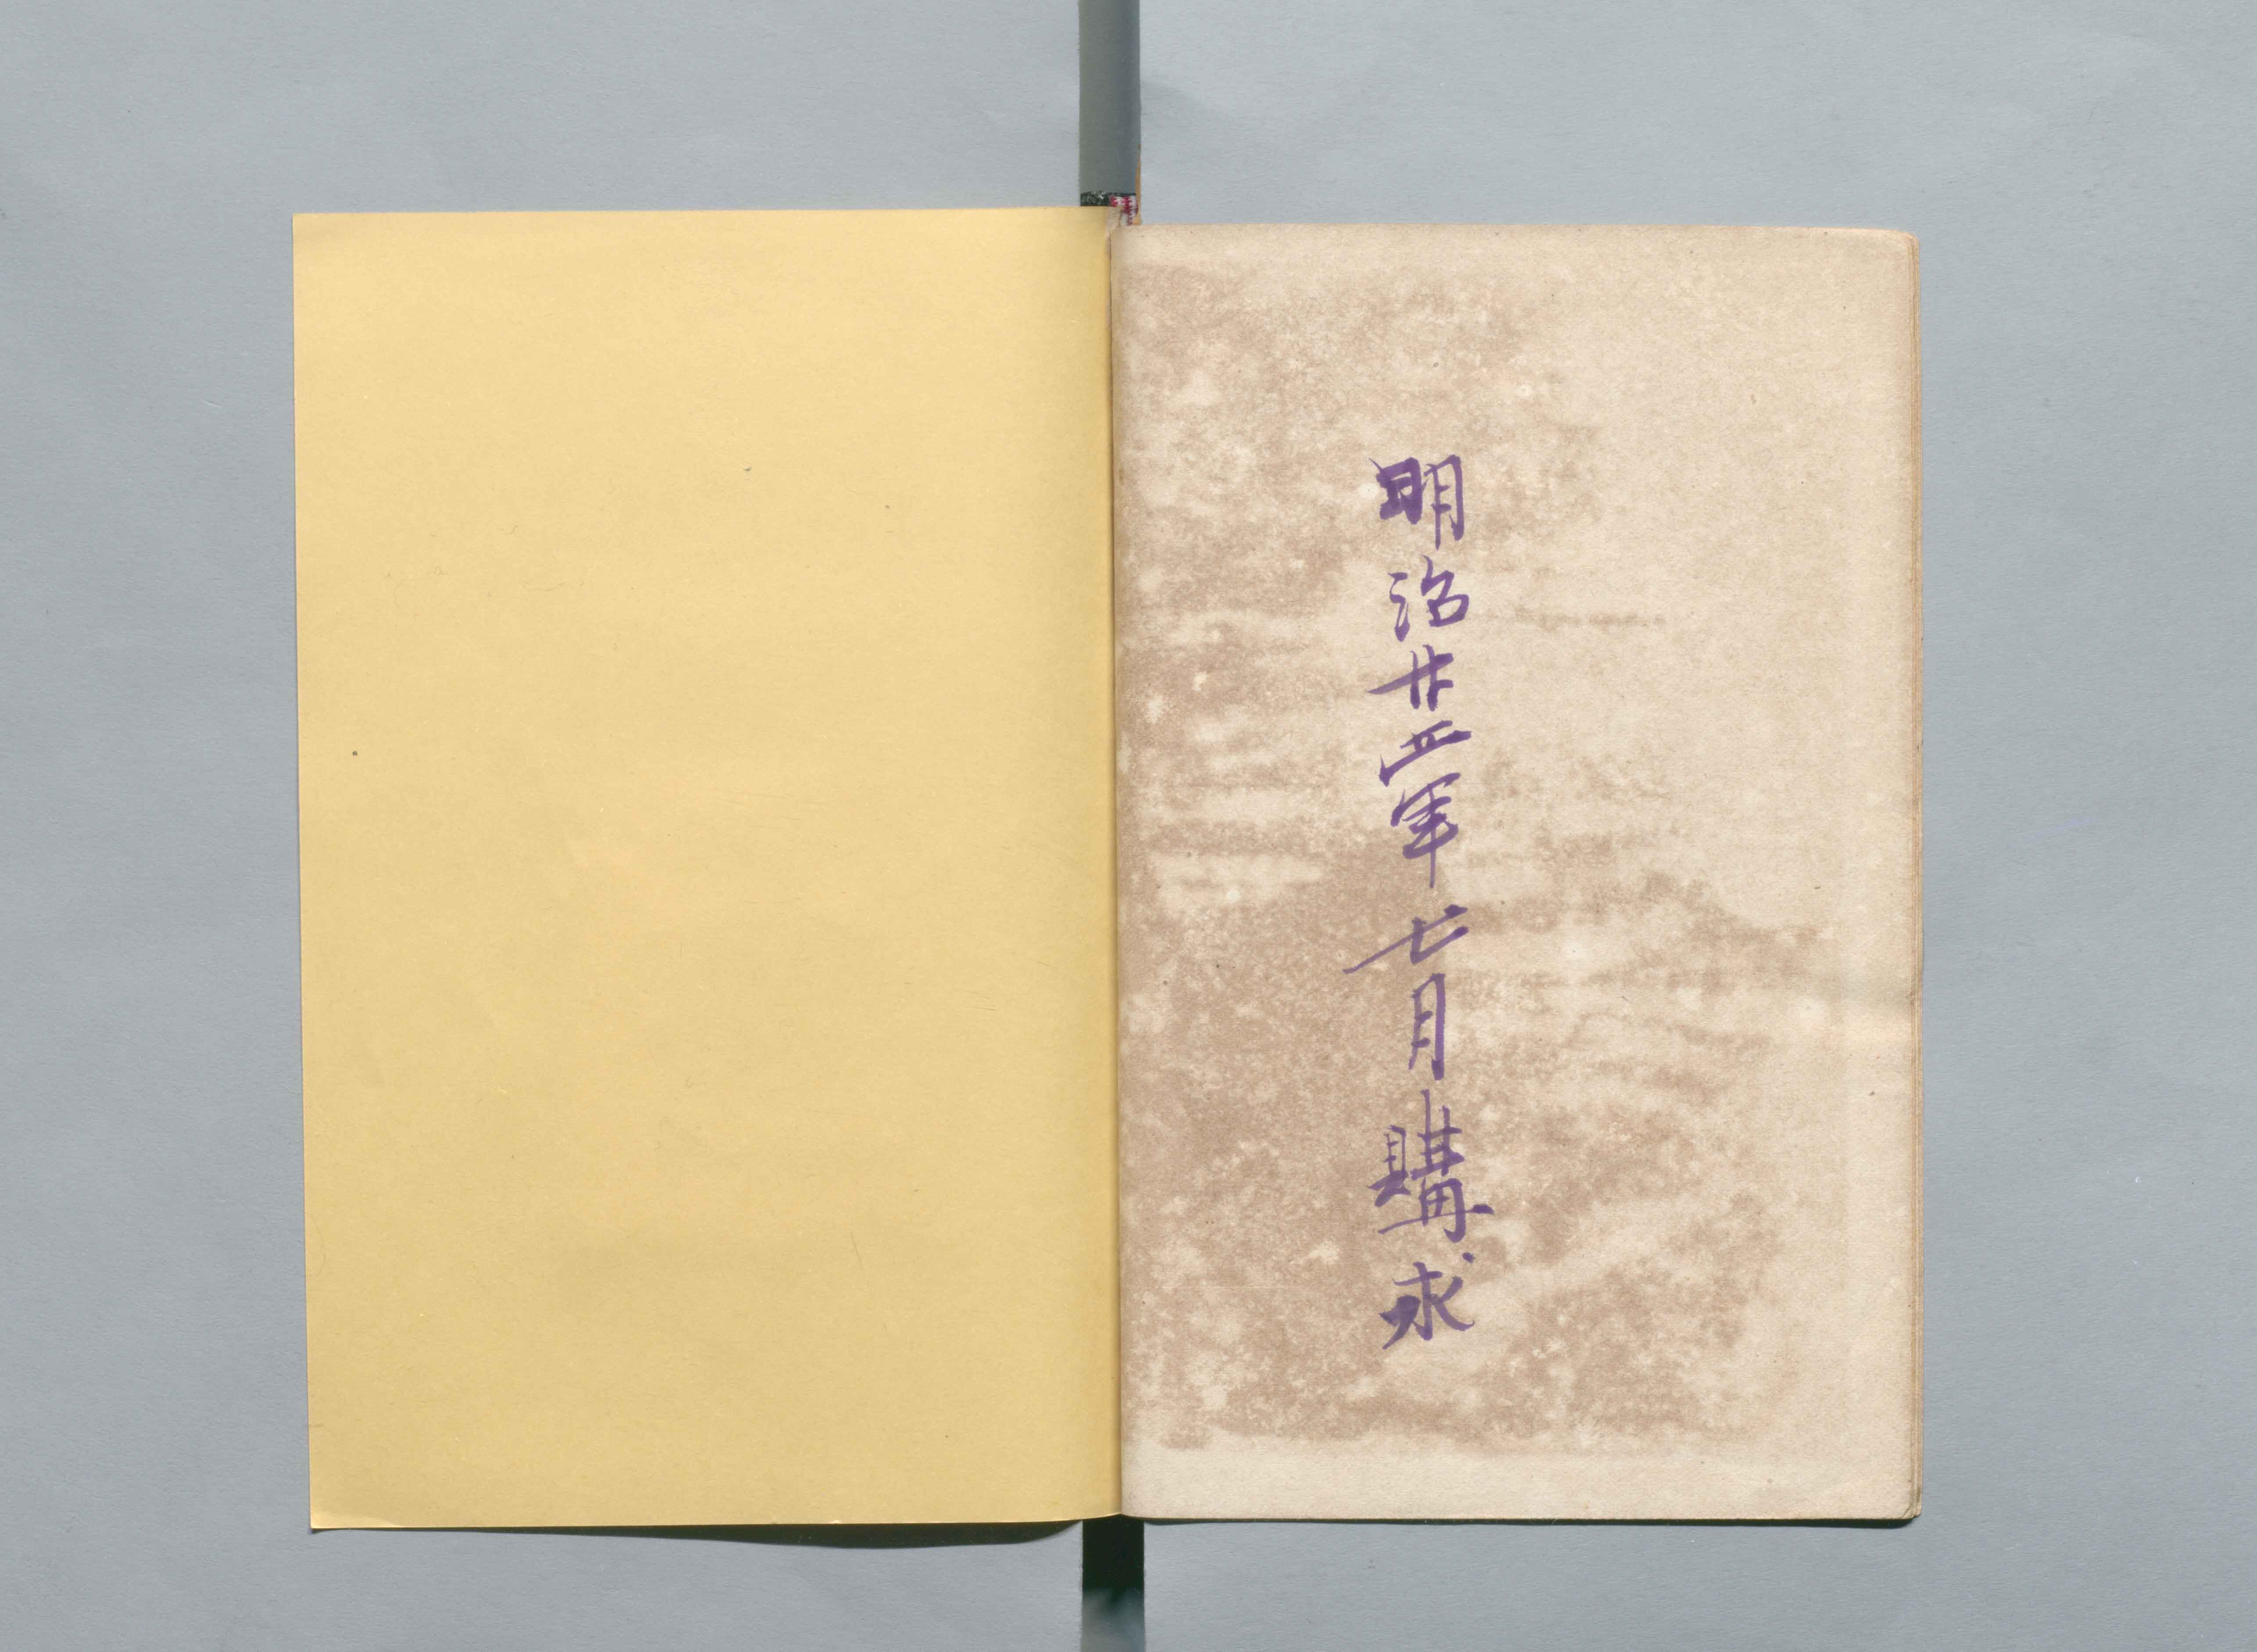 明治廿五年七月購求